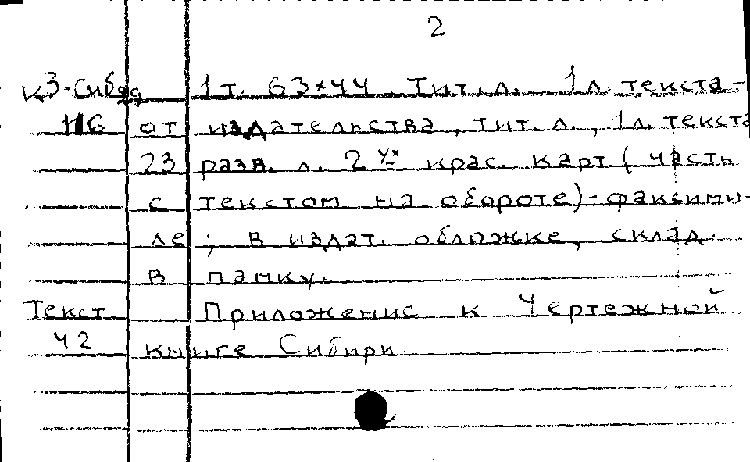 2
КЗ-Сибдд 1т. 63×44 Тит.л. 1л. текста-
116 от издательства, тит. л., 1л. текста
23 разв. л. 2ух крас. карт (часть
с текстом на обороте)-факсими-
ле; в издат. обложке, склад.
в папку.
Текст Приложение к Чертежной
42 книге Сибири